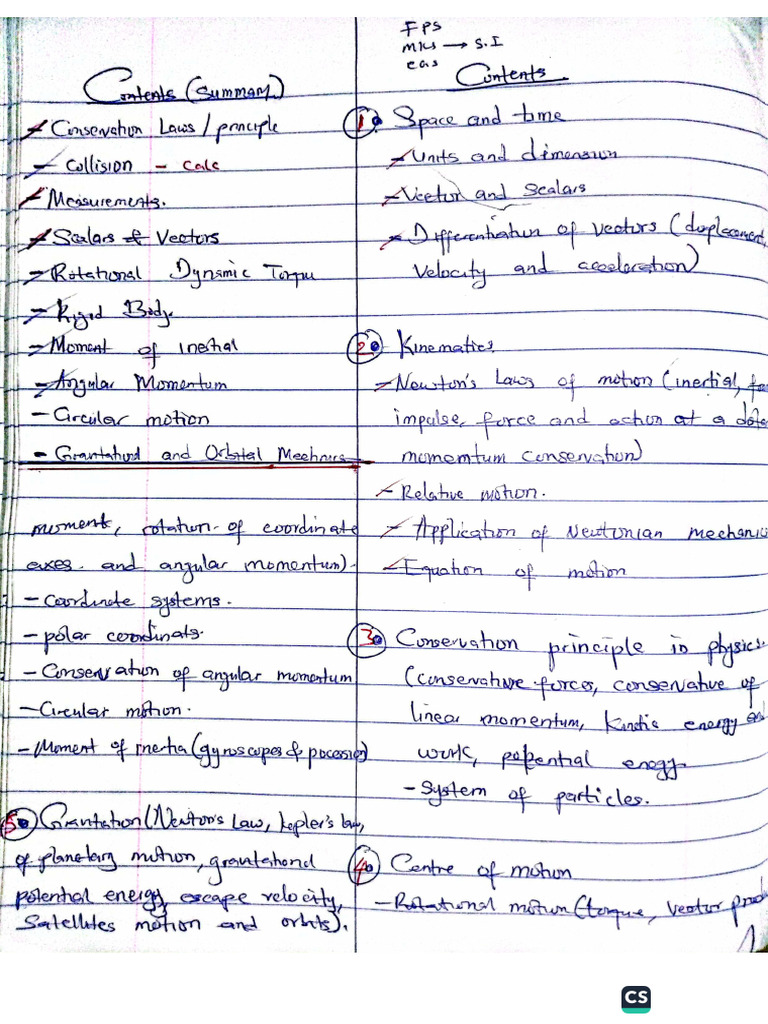 Contents (Summary)
- Conservation Laws / principle
- Collision - calc
- Measurements.
- Scalars & Vectors
- Rotational Dynamic Torque
- Rigid Body.
- Moment of inertial
- Angular Momentum
- Circular motion
- Gravitational and Orbital Mechanics
moment, rotation of coordinate
axes and angular momentum).
- Coordinate systems.
- polar coordinats.
- Conservation of angular momentum
- Circular motion.
- Moment of inertia (gyroscopes &
5. Gravitation (Newton's Law, kepler's law,
of planetary motion, gravitational
potential energy, escape velocity,
Satellites motion and orbits).
FPS
MKS → S.I
CGS
Contents
1. Space and time
- Units and dimension
- Vector and Scalars
- Differentiation of vectors (displacement,
velocity and acceleration)
2. Kinematics.
- Newton's Laws of motion (inertial,
impulse, force and action at a
momemtum conservation)
- Relative motion.
- Application of Newtonian mechanic
- Equation of motion
3. Conservation principle in physics.
(conservative forces, conservative of
linear momentum, kinetic energy and
work, potential energy.
- System of particles.
4. Centre of motion
- Rotational motion (torque, vector prod
1
CS